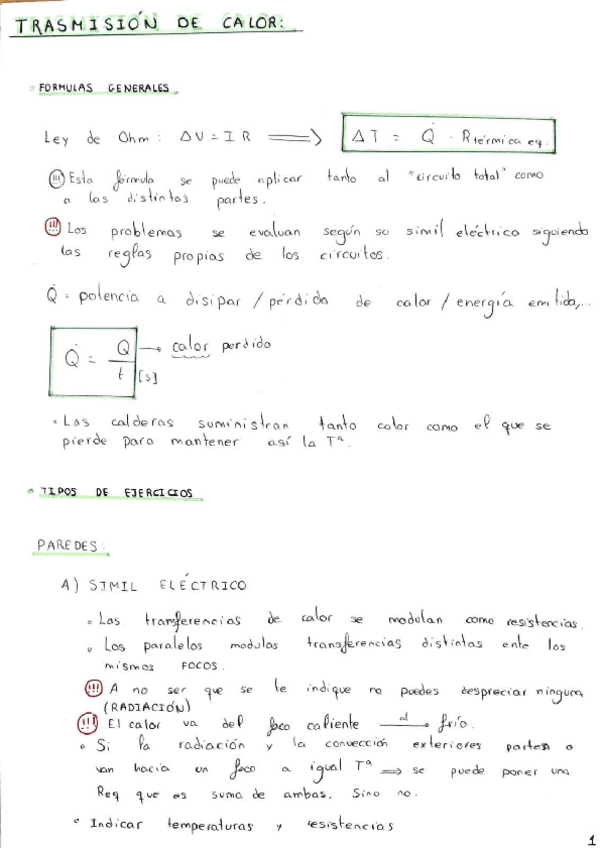 TRASMISIÓN DE CALOR:
• FORMULAS GENERALES.
Ley de Ohm: ΔV = I R ⟹ ΔT = Q̇ · Rtérmica eq.
(!!!) Esta formula se puede aplicar tanto al "circuito total" como
a las distintas partes.
(!!!) Los problemas se evaluan según su simil eléctrico siguiendo
las reglas propias de los circuitos.
Q̇ = potencia a disipar / pérdida de calor / energía emitida,...
Q̇ = Q/t → calor perdido
[s]
• Las calderas suministran tanto calor como el que se
pierde para mantener así la Tª.
• TIPOS DE EJERCICIOS
PAREDES:
A) SIMIL ELÉCTRICO
• Las transferencias de calor se modulan como resistencias.
• Los paralelos modulas transferencias distintas ente los
mismos FOCOS.
(!!!) A no ser que se te indique no puedes despreciar ninguna
(RADIACIÓN)
(!!!) El calor va del foco caliente al → frío.
• Si la radiación y la convección exteriores parten o
van hacia un foco a igual Tª ⟹ se puede poner una
Req que es suma de ambas. Sino no.
• Indicar temperaturas y resistencias
1